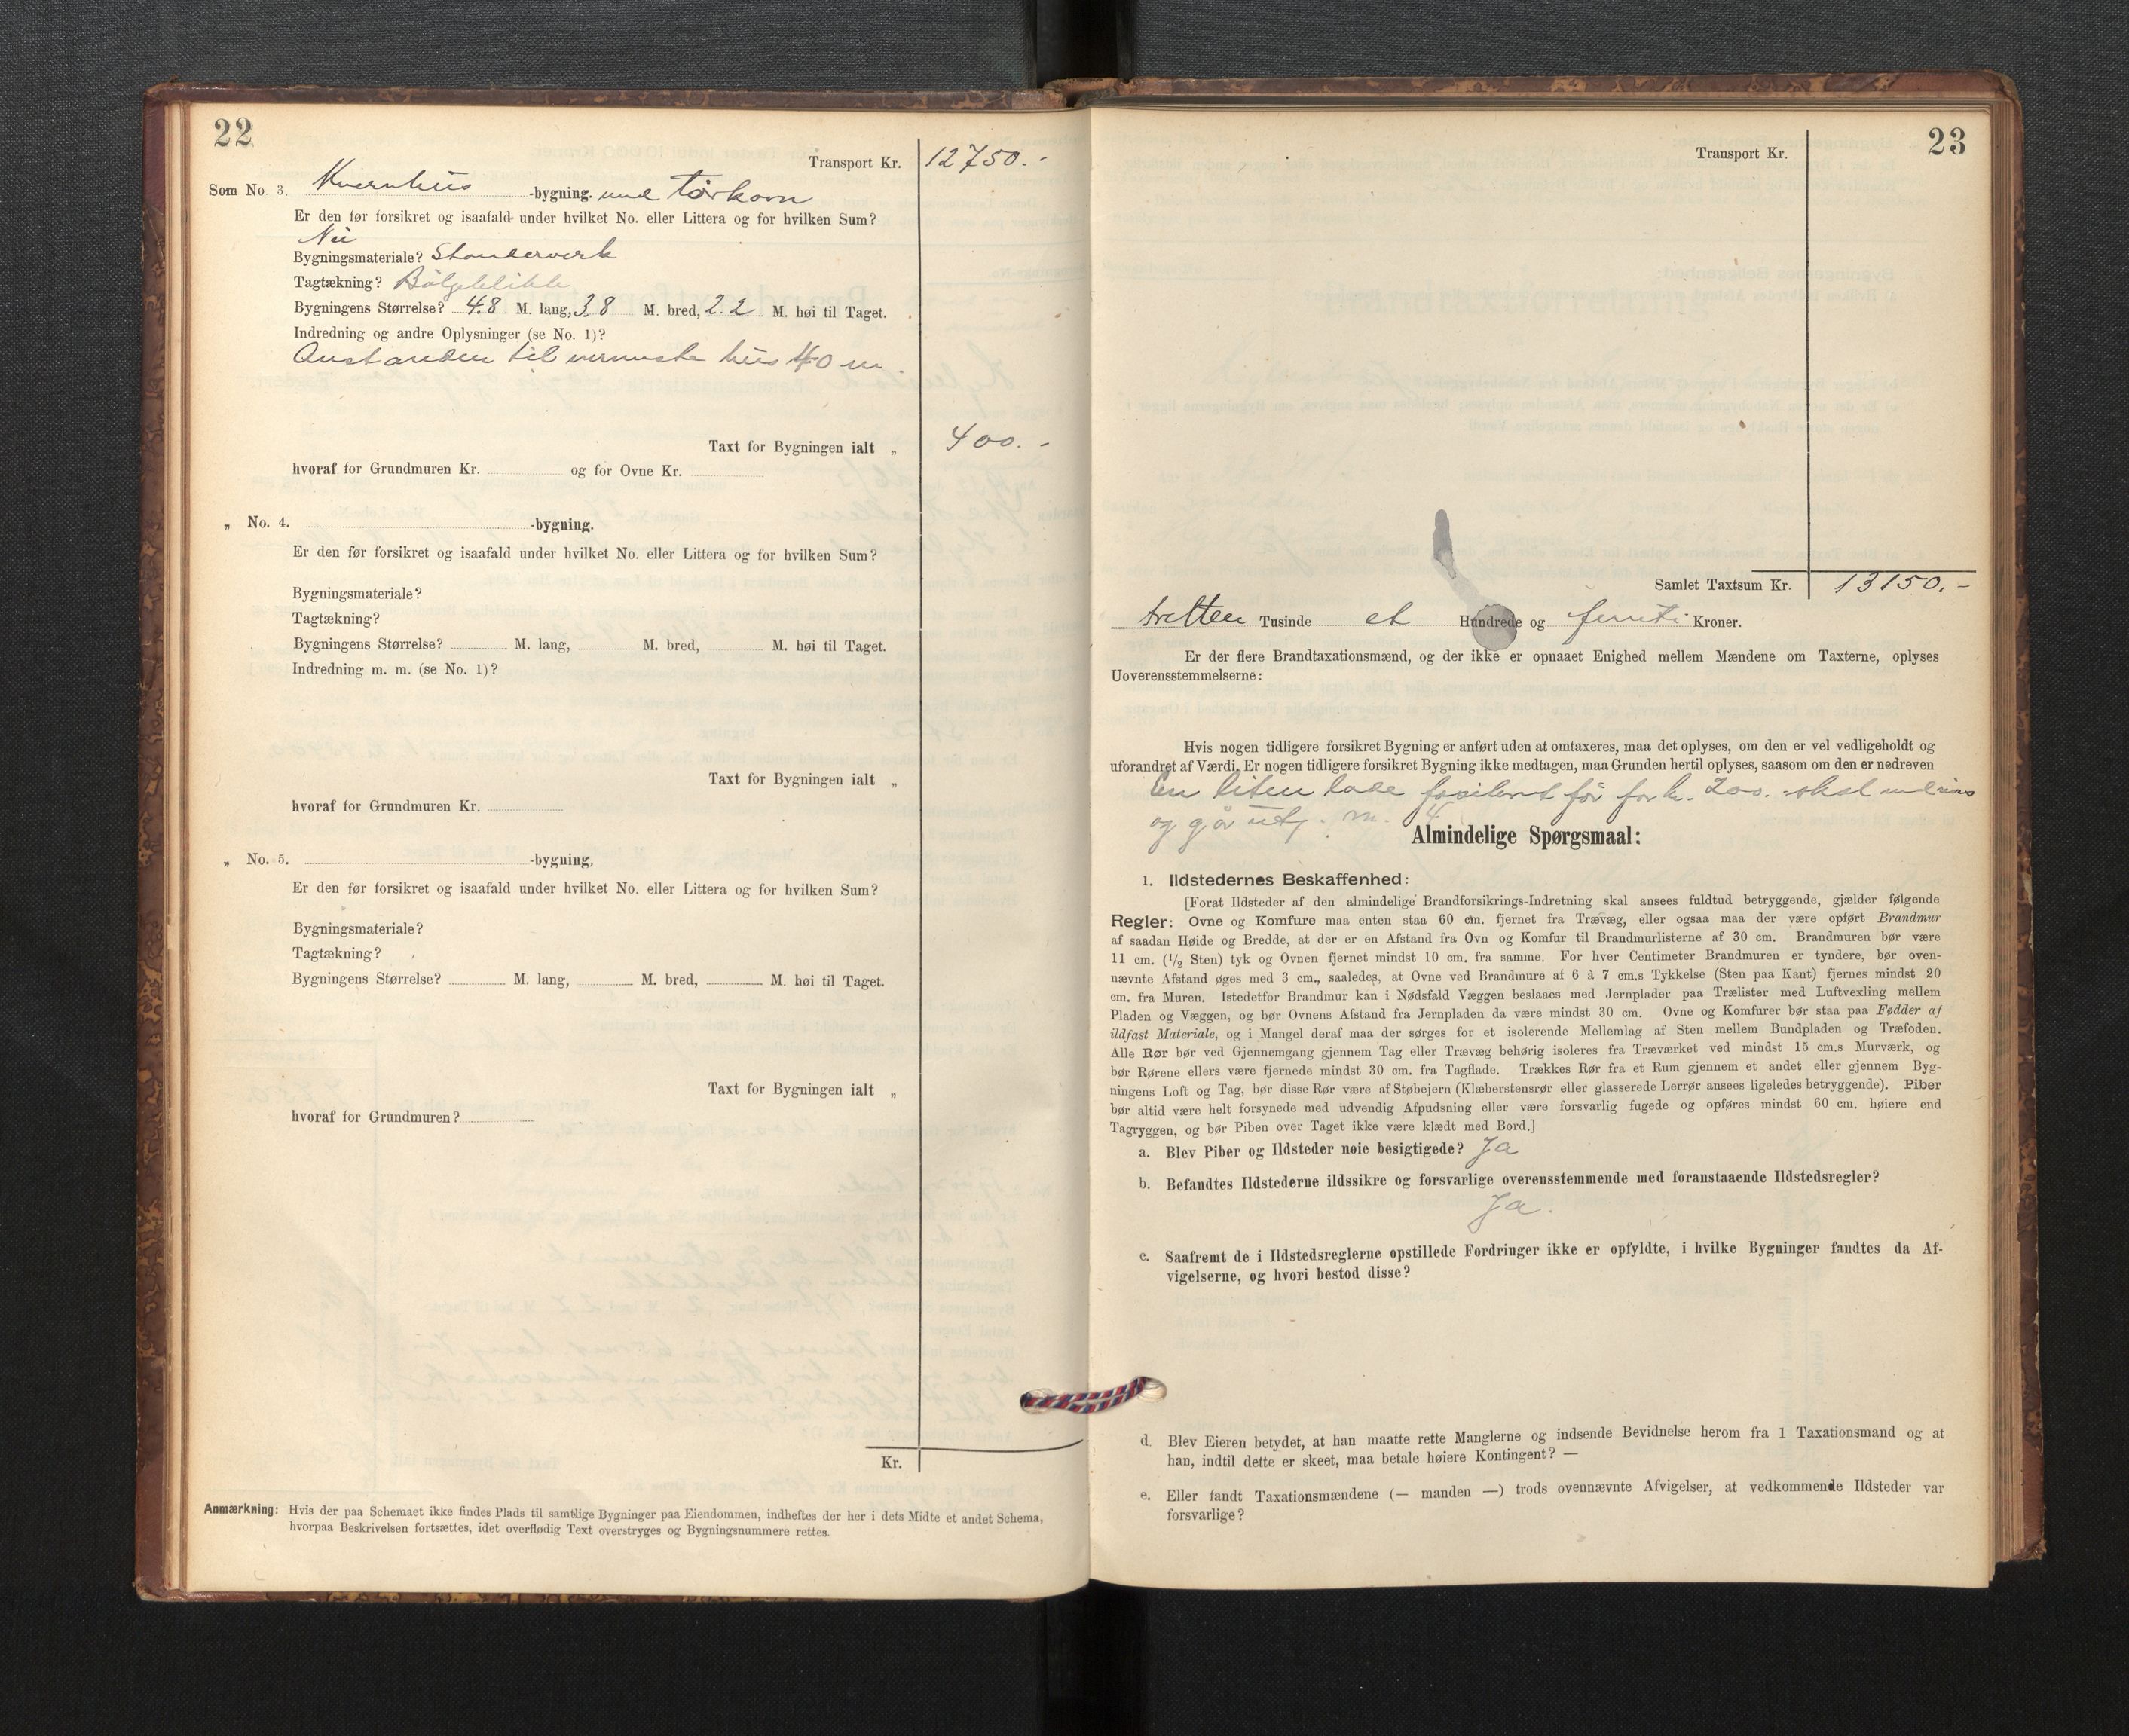 22
Transport Kr. 12750.-
Som No. 3. Kvernhus -bygning. med tørkorn
Er den før forsikret og isaafald under hvilket No. eller Littera og for hvilken Sum?
Nei
Bygningsmateriale? Standerverk
Tagtækning? Bölgeblikk
Bygningens Størrelse? 4.8 M. lang, 3.8 M. bred, 2.2 M. høi til Taget.
Indredning og andre Oplysninger (se No. 1)?
Avstanden til nærmeste hus 40 m.
Taxt for Bygningen ialt „ 400.-
hvoraf for Grundmuren Kr. og for Ovne Kr.
„ No. 4. -bygning.
Er den før forsikret og isaafald under hvilket No. eller Littera og for hvilken Sum?
Bygningsmateriale?
Tagtækning?
Bygningens Størrelse? M. lang, M. bred, M. høi til Taget.
Indredning m. m. (se No. 1)?
Taxt for Bygningen ialt „
hvoraf for Grundmuren Kr.
„ No. 5. -bygning,
Er den før forsikret og isaafald under hvilket No. eller Littera og for hvilken Sum?
Bygningsmateriale?
Tagtækning?
Bygningens Størrelse? M. lang, M. bred, M. høi til Taget.
Taxt for Bygningen ialt „
hvoraf for Grundmuren?
Kr.
Anmærkning: Hvis der paa Schemaet ikke findes Plads til samtlige Bygninger paa Eiendommen, indheftes der her i dets Midte et andet Schema,
hvorpaa Beskrivelsen fortsættes, idet overflødig Text overstryges og Bygningsnummere rettes.
23
Transport Kr.
Samlet Taxtsum Kr. 13150.-
tretten Tusinde et Hundrede og femti Kroner.
Er der flere Brandtaxationsmænd, og der ikke er opnaaet Enighed mellem Mændene om Taxterne, oplyses
Uoverensstemmelserne:
Hvis nogen tidligere forsikret Bygning er anført uden at omtaxeres, maa det oplyses, om den er vel vedligeholdt og
uforandret af Værdi. Er nogen tidligere forsikret Bygning ikke medtagen, maa Grunden hertil oplyses, saasom om den er nedreven
En liten före for kr. 200. skal
og går utg.
Almindelige Spørgsmaal:
1. Ildstedernes Beskaffenhed:
[Forat Ildsteder af den almindelige Brandforsikrings-Indretning skal ansees fuldtud betryggende, gjælder følgende
Regler: Ovne og Komfure maa enten staa 60 cm. fjernet fra Trævæg, eller ogsaa maa der være opført Brandmur
af saadan Høide og Bredde, at der er en Afstand fra Ovn og Komfur til Brandmurlisterne af 30 cm. Brandmuren bør være
11 cm. (1/2 Sten) tyk og Ovnen fjernet mindst 10 cm. fra samme. For hver Centimeter Brandmuren er tyndere, bør oven-
nævnte Afstand øges med 3 cm., saaledes, at Ovne ved Brandmure af 6 à 7 cm.s Tykkelse (Sten paa Kant) fjernes mindst 20
cm. fra Muren. Istedetfor Brandmur kan i Nødsfald Væggen beslaaes med Jernplader paa Trælister med Luftvexling mellem
Pladen og Væggen, og bør Ovnens Afstand fra Jernpladen da være mindst 30 cm. Ovne og Komfurer bør staa paa Fødder af
ildfast Materiale, og i Mangel deraf maa der sørges for et isolerende Mellemlag af Sten mellem Bundpladen og Træfoden.
Alle Rør bør ved Gjennemgang gjennem Tag eller Trævæg behørig isoleres fra Træværket ved mindst 15 cm.s Murværk, og
bør Rørene ellers være fjernede mindst 30 cm. fra Tagflade. Trækkes Rør fra et Rum gjennem et andet eller gjennem Byg-
ningens Loft og Tag, bør disse Rør være af Støbejern (Klæberstensrør eller glasserede Lerrør ansees ligeledes betryggende). Piber
bør altid være helt forsynede med udvendig Afpudsning eller være forsvarlig fugede og opføres mindst 60 cm. høiere end
Tagryggen, og bør Piben over Taget ikke være klædt med Bord.]
a. Blev Piber og Ildsteder nøie besigtigede? Ja
b. Befandtes Ildstederne ildssikre og forsvarlige overensstemmende med foranstaaende Ildstedsregler?
Ja.
c. Saafremt de i Ildstedsreglerne opstillede Fordringer ikke er opfyldte, i hvilke Bygninger fandtes da Af-
vigelserne, og hvori bestod disse?
d. Blev Eieren betydet, at han maatte rette Manglerne og indsende Bevidnelse herom fra 1 Taxationsmand og at
han, indtil dette er skeet, maa betale høiere Kontingent? —
e. Eller fandt Taxationsmændene (— manden —) trods ovennævnte Afvigelser, at vedkommende Ildsteder var
forsvarlige?